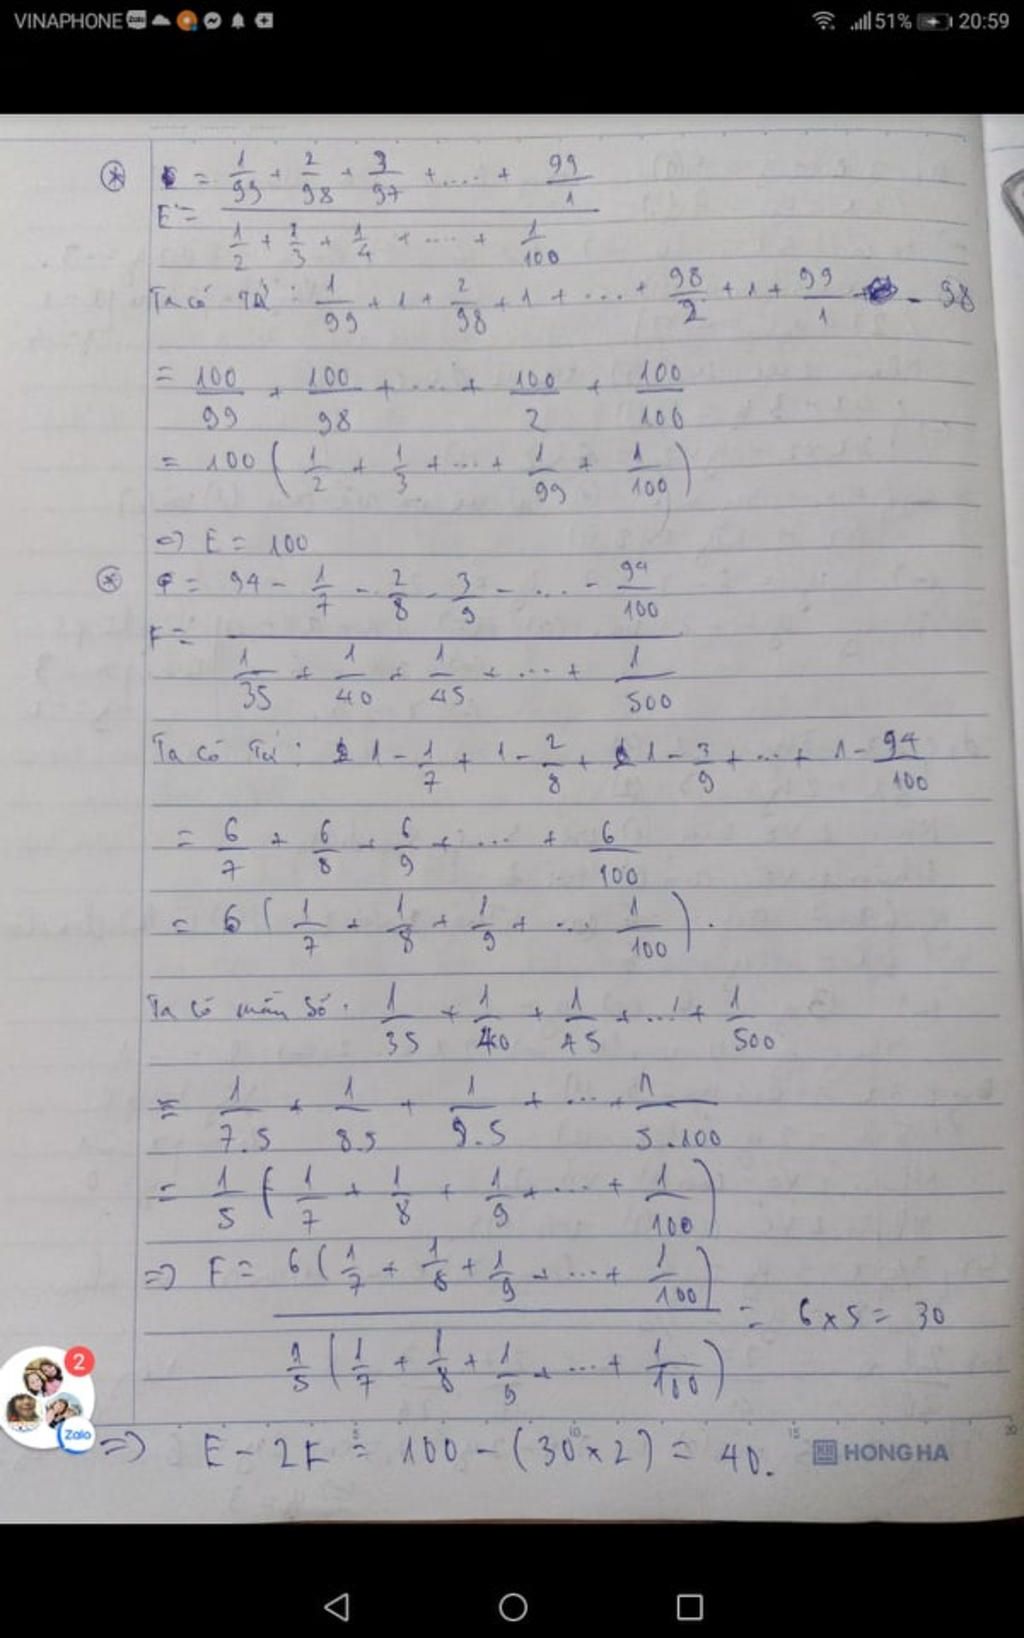 VINAPHONE 51% 20:59
* = 1/99 + 2/98 + 3/97 + .... + 99/1
E =
1/2 + 1/3 + 1/4 + .... + 1/100
Ta có Tử : 1/99 + 1 + 2/98 + 1 + ... + 98/2 + 1 + 99/1 - 98
= 100/99 + 100/98 + ... + 100/2 + 100/100
= 100 ( 1/2 + 1/3 + ... + 1/99 + 1/100 )
=> E = 100
* = 94 - 1/7 - 2/8 - 3/9 - ... - 94/100
F =
1/35 + 1/40 + 1/45 + ... + 1/500
Ta có Tử : 1 - 1/7 + 1 - 2/8 + 1 - 3/9 + ... + 1 - 94/100
= 6/7 + 6/8 + 6/9 + ... + 6/100
= 6 ( 1/7 + 1/8 + 1/9 + ... 1/100 ) .
Ta có mẫu số . 1/35 + 1/40 + 1/45 + ... + 1/500
= 1/7.5 + 1/8.5 + 1/9.5 + ... + 1/5.100
= 1/5 ( 1/7 + 1/8 + 1/9 + ... + 1/100 )
=> F = 6 ( 1/7 + 1/8 + 1/9 + ... + 1/100 )
= 6 x 5 = 30
1/5 ( 1/7 + 1/8 + 1/9 + ... + 1/100 )
2
Zalo
=> E - 2F = 100 - (30 x 2) = 40.
HONG HA